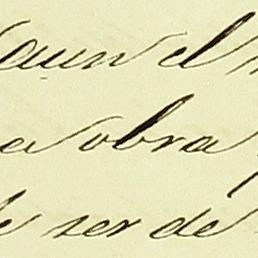 aun el
a obra
de ser de